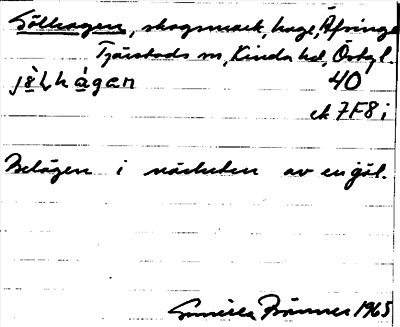 Gölhagen, skogsmark, hage, Åfvinge
Tjärstads sn, Kinda hd, Östgl.
jö̀lhàgan 40
ek 7F8i
Belägen i närheten av en göl.
Gunilla Brönner 1965